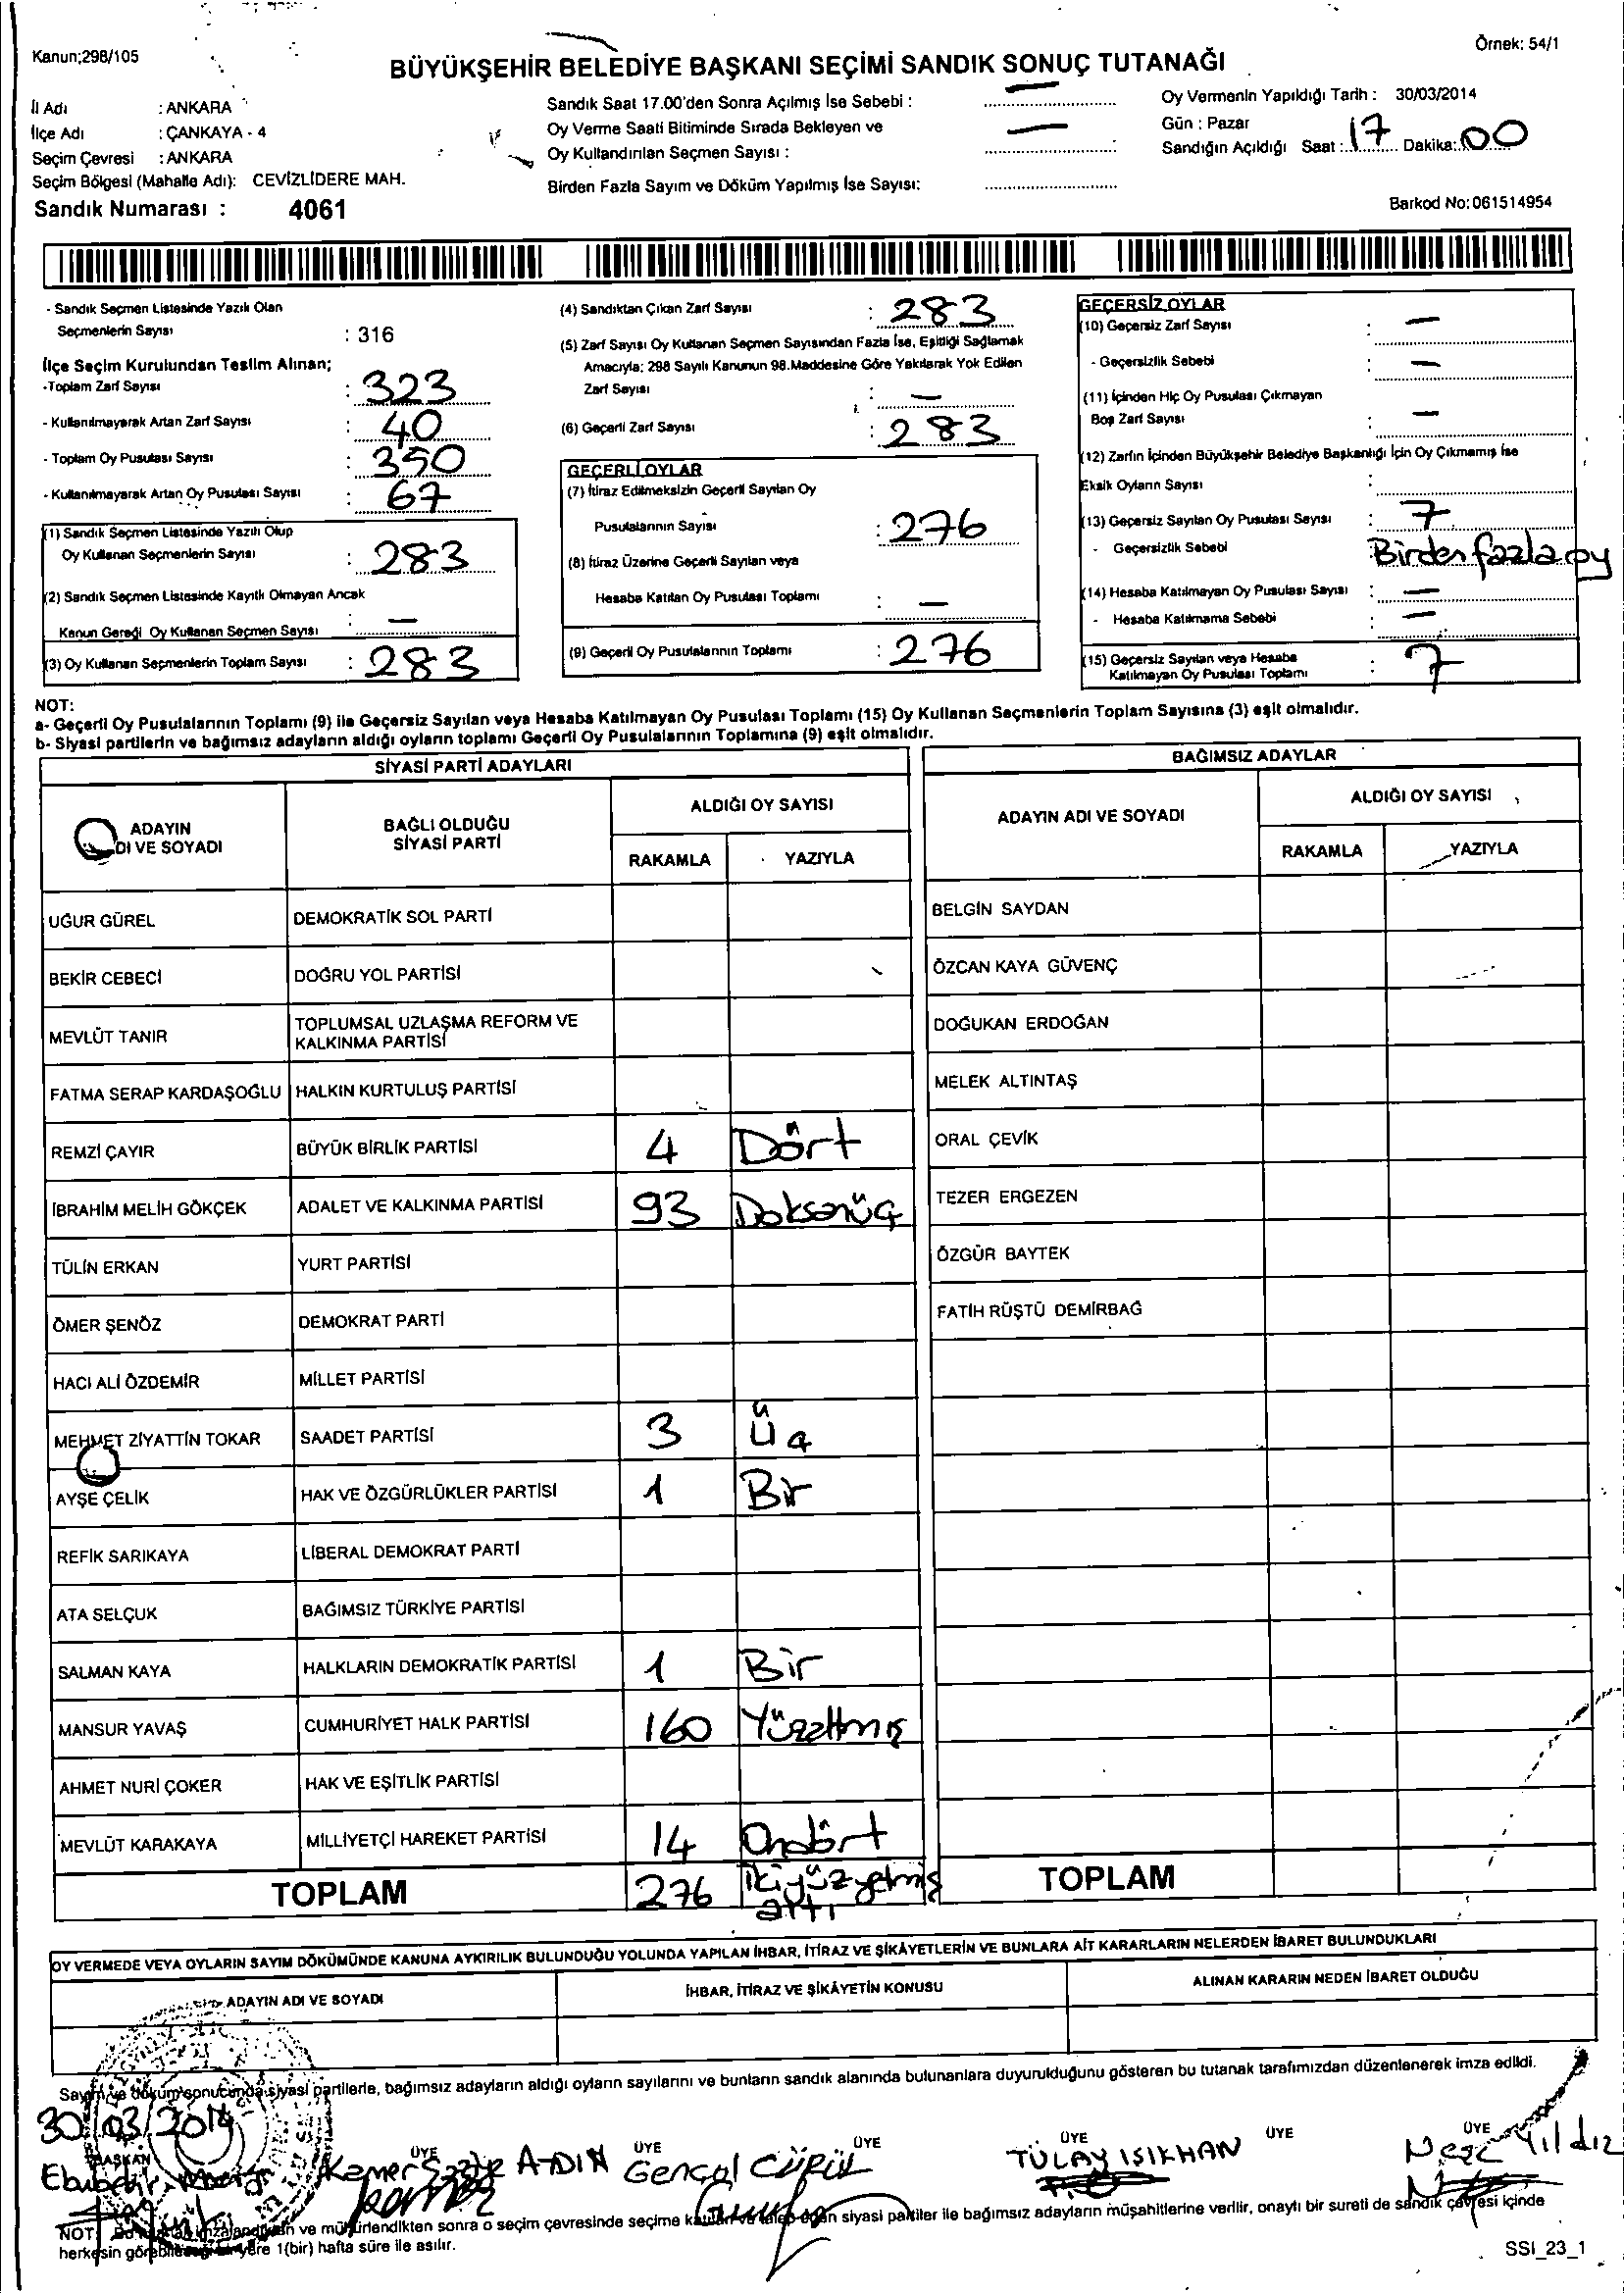 Kanun;298/105
Örnek: 54/1
BÜYÜKŞEHİR BELEDİYE BAŞKANI SEÇİMİ SANDIK SONUÇ TUTANAĞI
İl Adı : ANKARA
İlçe Adı : ÇANKAYA - 4
Seçim Çevresi : ANKARA
Seçim Bölgesi (Mahalle Adı): CEVİZLİDERE MAH.
Sandık Numarası : 4061
Sandık Saat 17.00'den Sonra Açılmış İse Sebebi : —
Oy Verme Saati Bitiminde Sırada Bekleyen ve
Oy Kullandırılan Seçmen Sayısı : —
Birden Fazla Sayım ve Döküm Yapılmış İse Sayısı:
Oy Vermenin Yapıldığı Tarih : 30/03/2014
Gün : Pazar
Sandığın Açıldığı Saat : 17 Dakika: 00
Barkod No:061514954
- Sandık Seçmen Listesinde Yazılı Olan
Seçmenlerin Sayısı : 316
İlçe Seçim Kurulundan Teslim Alınan;
-Toplam Zarf Sayısı : 323
- Kullanılmayarak Artan Zarf Sayısı : 40
- Toplam Oy Pusulası Sayısı : 350
- Kullanılmayarak Artan Oy Pusulası Sayısı : 67
(1) Sandık Seçmen Listesinde Yazılı Olup
Oy Kullanan Seçmenlerin Sayısı : 283
(2) Sandık Seçmen Listesinde Kayıtlı Olmayan Ancak
Kanun Gereği Oy Kullanan Seçmen Sayısı : —
(3) Oy Kullanan Seçmenlerin Toplam Sayısı : 283
(4) Sandıktan Çıkan Zarf Sayısı : 283
(5) Zarf Sayısı Oy Kullanan Seçmen Sayısından Fazla İse, Eşitliği Sağlamak
Amacıyla; 298 Sayılı Kanunun 98.Maddesine Göre Yakılarak Yok Edilen
Zarf Sayısı : —
(6) Geçerli Zarf Sayısı : 283
GEÇERLİ OYLAR
(7) İtiraz Edilmeksizin Geçerli Sayılan Oy
Pusulalarının Sayısı : 276
(8) İtiraz Üzerine Geçerli Sayılan veya
Hesaba Katılan Oy Pusulası Toplamı : —
(9) Geçerli Oy Pusulalarının Toplamı : 276
GEÇERSİZ OYLAR
(10) Geçersiz Zarf Sayısı : —
- Geçersizlik Sebebi : —
(11) İçinden Hiç Oy Pusulası Çıkmayan
Boş Zarf Sayısı : —
(12) Zarfın İçinden Büyükşehir Belediye Başkanlığı İçin Oy Çıkmamış İse
Eksik Oyların Sayısı :
(13) Geçersiz Sayılan Oy Pusulası Sayısı : 7
- Geçersizlik Sebebi Birden fazla oy
(14) Hesaba Katılmayan Oy Pusulası Sayısı : —
- Hesaba Katılmama Sebebi : —
(15) Geçersiz Sayılan veya Hesaba
Katılmayan Oy Pusulası Toplamı : 7
NOT:
a- Geçerli Oy Pusulalarının Toplamı (9) ile Geçersiz Sayılan veya Hesaba Katılmayan Oy Pusulası Toplamı (15) Oy Kullanan Seçmenlerin Toplam Sayısına (3) eşit olmalıdır.
b- Siyasi partilerin ve bağımsız adayların aldığı oyların toplamı Geçerli Oy Pusulalarının Toplamına (9) eşit olmalıdır.
SİYASİ PARTİ ADAYLARI
ADAYIN
DI VE SOYADI
BAĞLI OLDUĞU
SİYASİ PARTİ
ALDIĞI OY SAYISI
RAKAMLA YAZIYLA
UĞUR GÜREL DEMOKRATİK SOL PARTİ
BEKİR CEBECİ DOĞRU YOL PARTİSİ
MEVLÜT TANIR TOPLUMSAL UZLAŞMA REFORM VE
KALKINMA PARTİSİ
FATMA SERAP KARDAŞOĞLU HALKIN KURTULUŞ PARTİSİ
REMZİ ÇAYIR BÜYÜK BİRLİK PARTİSİ 4 Dört
İBRAHİM MELİH GÖKÇEK ADALET VE KALKINMA PARTİSİ 93 Doksanüç
TÜLİN ERKAN YURT PARTİSİ
ÖMER ŞENÖZ DEMOKRAT PARTİ
HACI ALİ ÖZDEMİR MİLLET PARTİSİ
MEHMET ZİYATTİN TOKAR SAADET PARTİSİ 3 Üç
AYŞE ÇELİK HAK VE ÖZGÜRLÜKLER PARTİSİ 1 Bir
REFİK SARIKAYA LİBERAL DEMOKRAT PARTİ
ATA SELÇUK BAĞIMSIZ TÜRKİYE PARTİSİ
SALMAN KAYA HALKLARIN DEMOKRATİK PARTİSİ 1 Bir
MANSUR YAVAŞ CUMHURİYET HALK PARTİSİ 160 Yüzaltmış
AHMET NURİ ÇOKER HAK VE EŞİTLİK PARTİSİ
MEVLÜT KARAKAYA MİLLİYETÇİ HAREKET PARTİSİ 14 Ondört
TOPLAM 276 ikiyüzyetmiş
altı
BAĞIMSIZ ADAYLAR
ADAYIN ADI VE SOYADI
ALDIĞI OY SAYISI
RAKAMLA YAZIYLA
BELGİN SAYDAN
ÖZCAN KAYA GÜVENÇ
DOĞUKAN ERDOĞAN
MELEK ALTINTAŞ
ORAL ÇEVİK
TEZER ERGEZEN
ÖZGÜR BAYTEK
FATİH RÜŞTÜ DEMİRBAĞ
TOPLAM
OY VERMEDE VEYA OYLARIN SAYIM DÖKÜMÜNDE KANUNA AYKIRILIK BULUNDUĞU YOLUNDA YAPILAN İHBAR, İTİRAZ VE ŞİKÂYETLERİN VE BUNLARA AİT KARARLARIN NELERDEN İBARET BULUNDUKLARI
ADAYIN ADI VE SOYADI
İHBAR, İTİRAZ VE ŞİKÂYETİN KONUSU
ALINAN KARARIN NEDEN İBARET OLDUĞU
Sayım ve döküm sonucunda siyasi partilerle, bağımsız adayların aldığı oyların sayılarını ve bunların sandık alanında bulunanlara duyurulduğunu gösteren bu tutanak tarafımızdan düzenlenerek imza edildi.
30/03/2014
BAŞKAN ÜYE ÜYE ÜYE ÜYE ÜYE ÜYE
Kamer AYDIN Gençal TÜLAY IŞIKHAN Yıldız
NOT: ve mühürlendikten sonra o seçim çevresinde seçime katılan ve siyasi partiler ile bağımsız adayların müşahitlerine verilir, onaylı bir sureti de sandık çevresi içinde
herkesin yere 1(bir) hafta süre ile asılır.
SSI_23_1